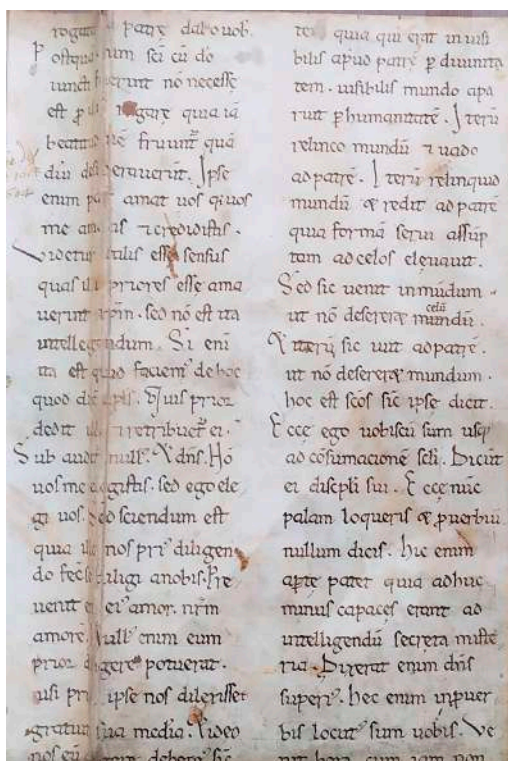 rogatu patrē dabo uob̄.
Postqua um sc̄i cū dō
iuncti fuerint nō necesse
est ꝑ il rogare quia iā
beatitu nē fruunt᷑ quā
diu desideraverūt. Ipse
enim pat amat uos q̇uos
me am tis ⁊credidistis.
Videtur tilis esse sensus
quas ill priores esse ama
uerint ip̄m. sed nō est ita
intellegendum. Si eni
ita est quid facient de hoc
quod dic ꝑls. Quis prior
dedit ill ⁊retribuet᷑ ei.
Sub audit null᷒. Et dn̄s. Nō
uos me elegistis. sed ego ele
gi uos. Sed sciendum est
quia ille nos pri᷒ diligen
do fec̄ se diligi anobis. Pre
uenit ei᷒ amor. nr̄m
amorē. Null᷒ enim eum
prior diligere potuerat.
nisi pri᷒ ipse nos dilexisset
gratuita sua media. Video
nos eū debem᷒ sic
ter quia qui erat inuisi
bilis apud patrē ꝑ diuinita
tem. uisibilis mundo apa
ruit ꝑhumanitatē. Iterū
relinco mundū ⁊ uado
ad patrē. Iterū relinquid
mundū & redit ad patrē
quia formā serui assūp
tam ad celos eleuauit.
Sed sic uenit inmūdum
celū
ut nō deserere mundū.
Et iterū sic iuit ad patrē.
ut nō desereret mundum.
hoc est sc̄os sic ipse dicit.
Ecce ego uobiscū sum usq;
ad cōsumacionē sc̄li. Dicūt
ei discipli sui. Ecce nūc
palam loqueris & ꝓuerbiū
nullum dicis. hic enim
aꝑte patet quia adhuc
minus capaces erant ad
intelligendū secreta miste
ria. Dixerat enim dn̄s
superi᷒. hec enim inpuer
bis locut᷒ sum uobis. Ve
nit hora cum iam non